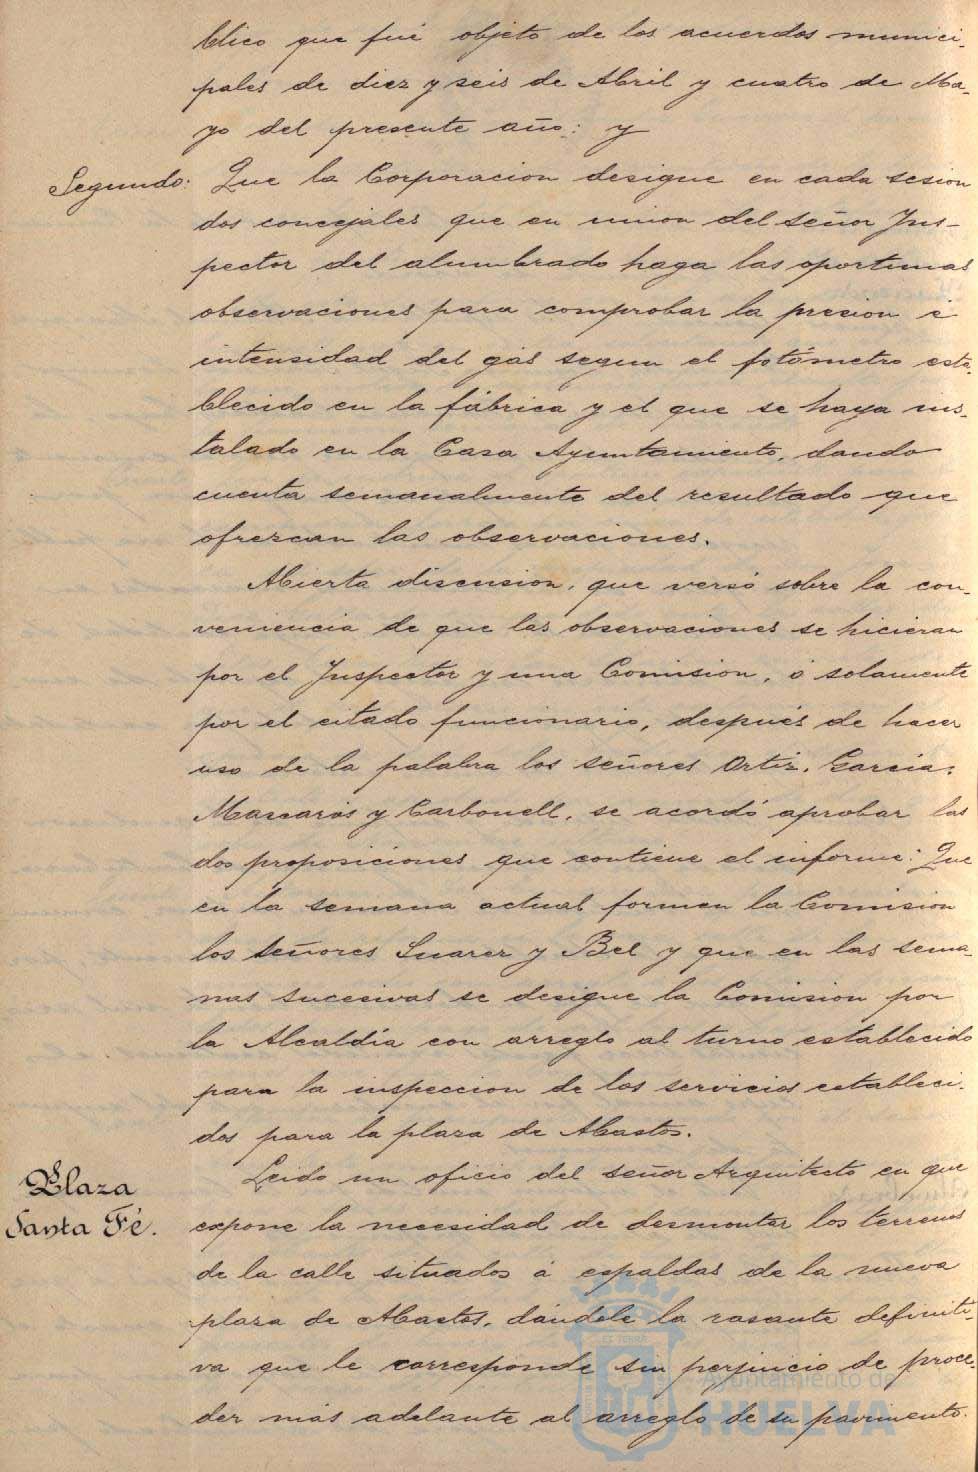 blico que fué objeto de los acuerdos munici-
pales de diez y seis de Abril y cuatro de Ma-
yo del presente año: y
Segundo: Que la Corporacion designe en cada sesion
dos concejales que en union del señor Ins-
pector del alumbrado haga las oportunas
observaciones para comprobar la presion é
intensidad del gas segun el fotómetro esta-
blecido en la fábrica y el que se haya ins-
talado en la Casa Ayuntamiento, dando
cuenta semanalmente del resultado que
ofrezcan las observaciones.
Abierta discusion, que versó sobre la con-
veniencia de que las observaciones se hicieran
por el Inspector y una Comision, ó solamente
por el citado funcionario, después de hacer
uso de la palabra los señores Ortiz, Garcia,
Mascarós y Carbonell, se acordó aprobar las
dos proposiciones que contiene el informe: Que
en la semana actual formen la Comision
los señores Suarez y Bel y que en las sema-
nas sucesivas se designe la Comision por
la Alcaldía con arreglo al turno establecido
para la inspeccion de los servicios estableci-
dos para la plaza de Abastos.
Plaza
Santa Fé.
Leido un oficio del señor Arquitecto en que
expone la necesidad de desmontar los terrenos
de la calle situados á espaldas de la nueva
plaza de Abastos, dándole la rasante definiti-
va que le corresponde sin perjuicio de proce-
der más adelante al arreglo de su pavimento.
Ayuntamiento de
HUELVA